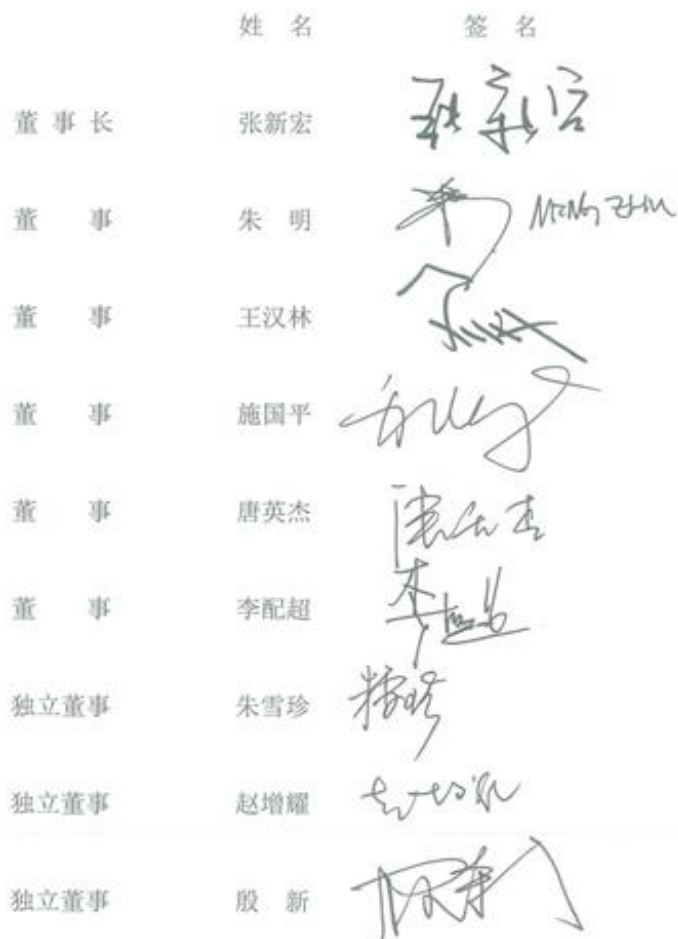 姓 名 签 名
董 事 长 张新宏 张新宏
董 事 朱 明 MING ZHU
董 事 王汉林
董 事 施国平
董 事 唐英杰 唐英杰
董 事 李配超
独立董事 朱雪珍
独立董事 赵增耀
独立董事 殷 新 殷新